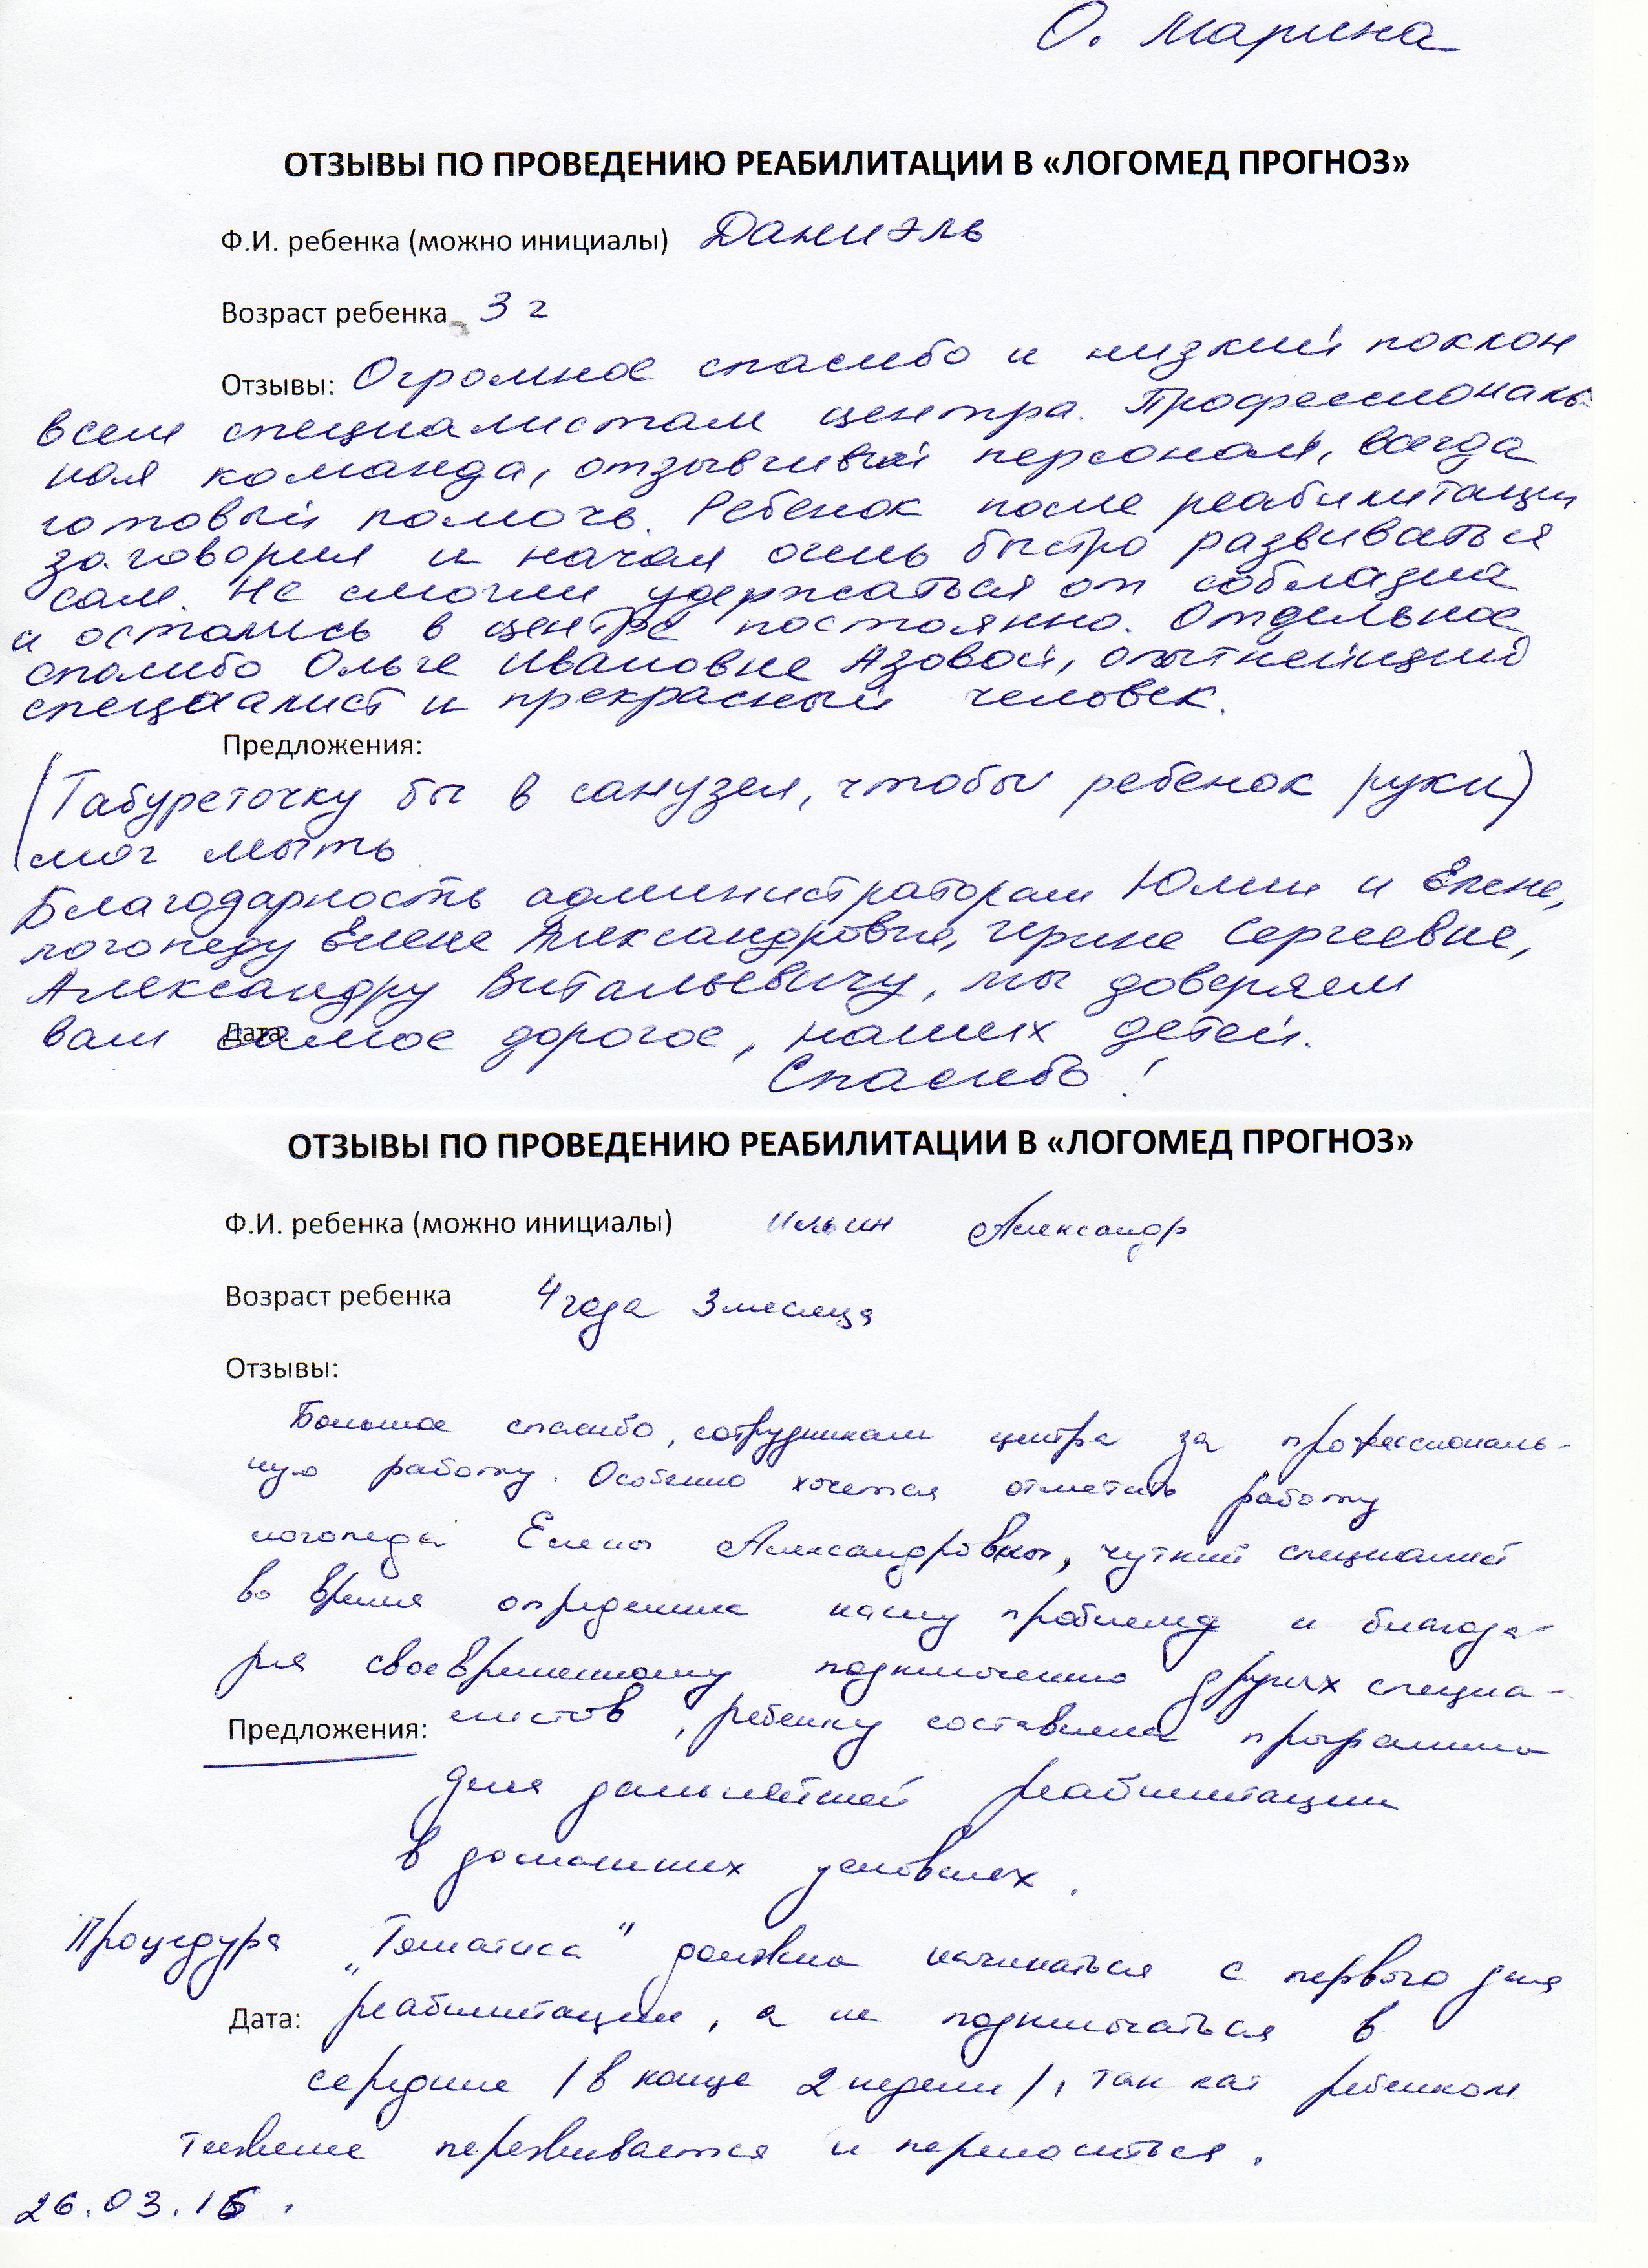 О. Марина
ОТЗЫВЫ ПО ПРОВЕДЕНИЮ РЕАБИЛИТАЦИИ В «ЛОГОМЕД ПРОГНОЗ»
Ф.И. ребенка (можно инициалы) Даниэль
Возраст ребенка 3 г
Отзывы: Огромное спасибо и низкий поклон
всем специалистам центра. Профессиональ-
ная команда, отзывчивый персонал, всегда
готовый помочь. Ребенок после реабилитации
заговорил и начал очень быстро развиваться
сам. Не смогли удержаться от соблазна
и остались в центре постоянно. Отдельное
спасибо Ольге Ивановне Азовой, опытнейший
специалист и прекрасный человек.
Предложения:
(Табуреточку бы в санузел, чтобы ребенок руки)
мог мыть.
Благодарность администраторам Юлии и Елене,
логопеду Елене Александровне, Ирине Сергеевне,
Александру Витальевичу, мы доверяем
вам самое дорогое, наших детей.
Дата:
Спасибо!
ОТЗЫВЫ ПО ПРОВЕДЕНИЮ РЕАБИЛИТАЦИИ В «ЛОГОМЕД ПРОГНОЗ»
Ф.И. ребенка (можно инициалы) Ильин Александр
Возраст ребенка 4 года 3 месяца
Отзывы:
Большое спасибо, сотрудникам центра за профессиональ-
ную работу. Особенно хочется отметить работу
логопеда Елены Александровны, чуткий специалист
во время определила нашу проблему и благода-
ря своевременному подключению других специа-
Предложения: листов, ребенку составлена программа
для дальнейшей реабилитации
в домашних условиях.
Процедура "Томатиса" должна начинаться с первого дня
Дата: реабилитации, а не подключаться в
середине /в конце 2 недели/, так как ребенком
тяжелее переживается и переноситься.
26.03.16.